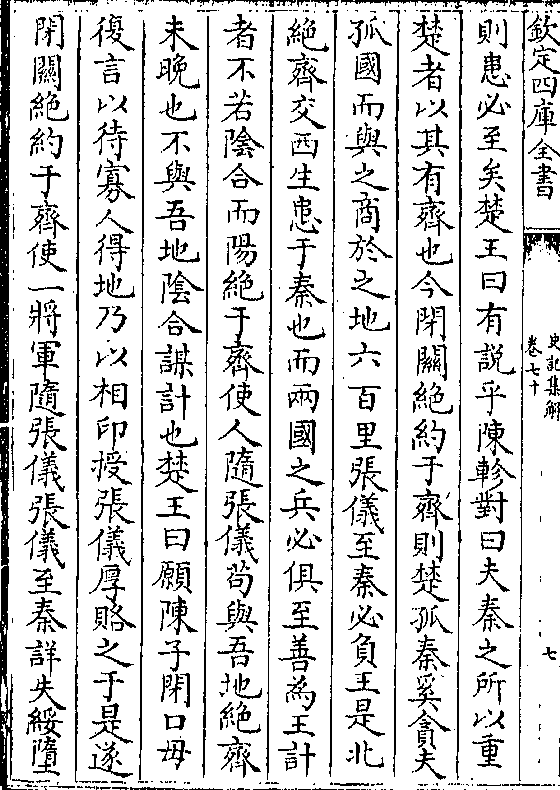 欽定四庫全書
史記集解
卷七十
七
則患必至矣楚王曰有説乎陳軫對曰夫秦之所以重
楚者以其有齊也今閉關絶約于齊則楚孤秦奚貪夫
孤國而與之商於之地六百里張儀至秦必負王是北
絶齊交西生患于秦也而兩國之兵必俱至善為王計
者不若陰合而陽絶于齊使人隨張儀茍與吾地絶齊
未晚也不與吾地陰合謀計也楚王曰願陳子閉口毋
復言以待寡人得地乃以相印授張儀厚賂之于是遂
閉關絶約于齊使一將軍隨張儀張儀至秦詳失綏墮